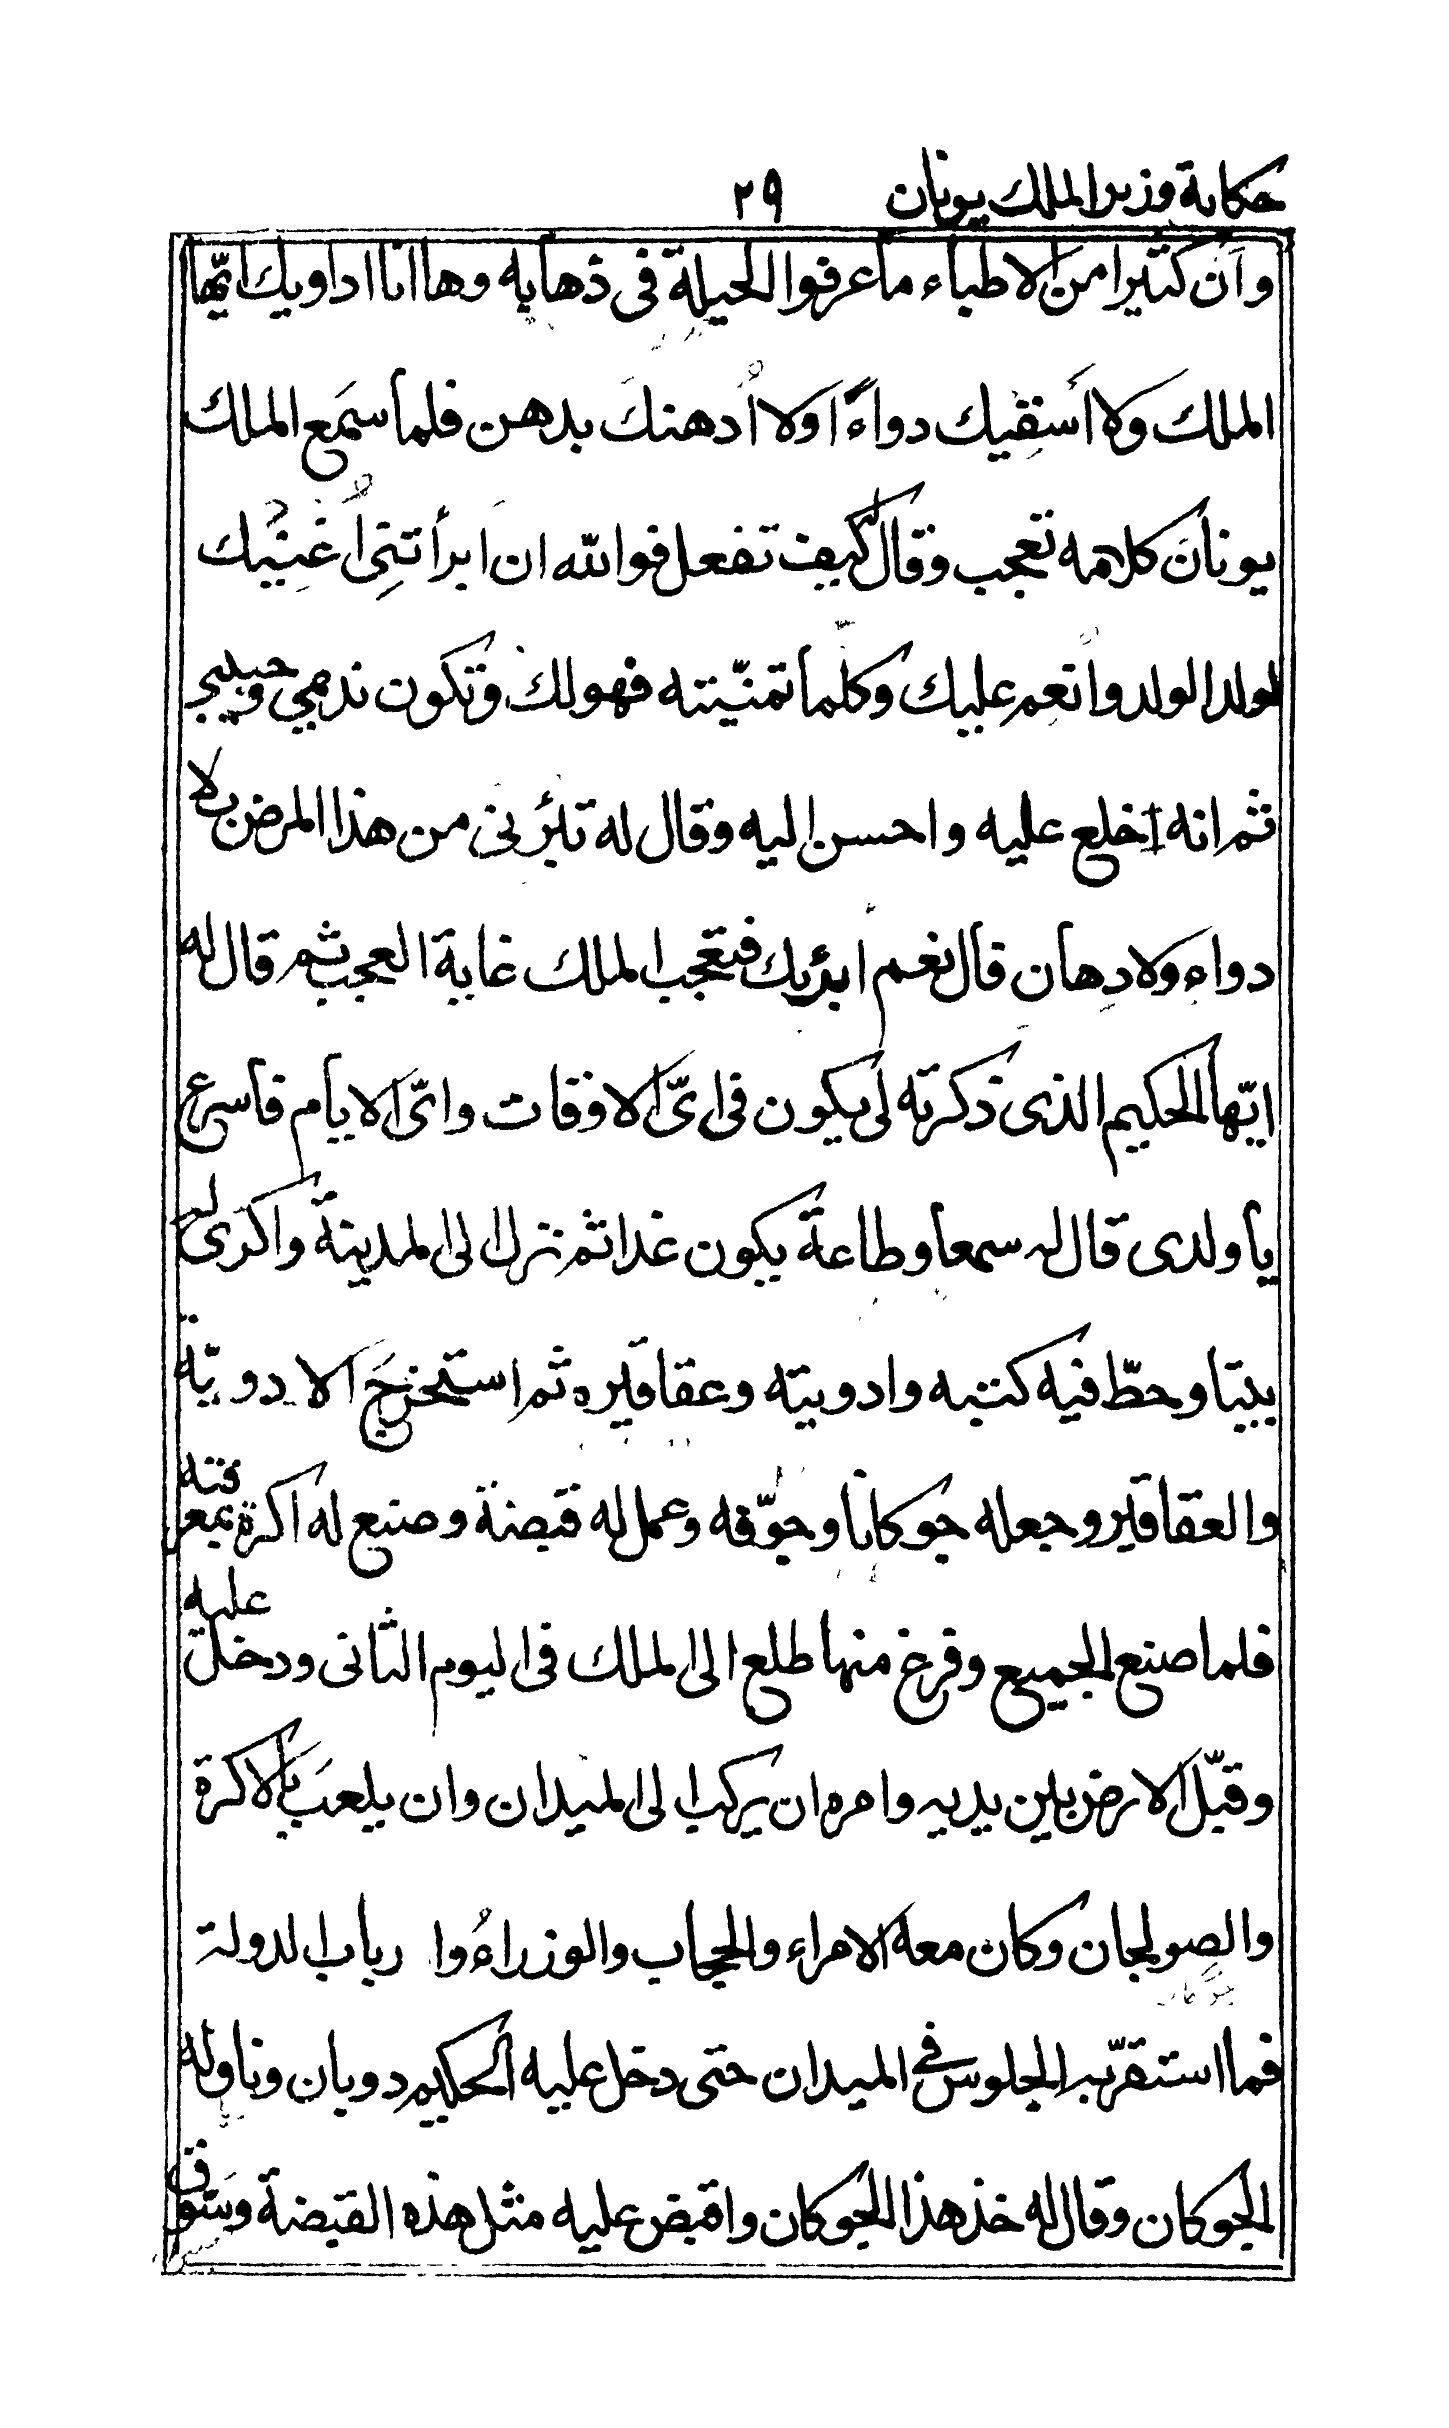 حكاية وزير الملك يونان ٢٩
وان كثيرا من الاطباء ما عرفوا الحيلة فى ذهابه وها انا اداويك ايّها
الملك ولا أسقيك دواءً ولا أدهنك بدهن فلما سمَع الملك
يونان كلامه تعجب وقال كيف تفعل فوالله ان ابرأتنِى أغنِيك
لولد الولد وانعم عليك وكلما تمنّيته فهو لك وتكون نديمي وحبيبي
ثم انه اخلع عليه واحسن اليه وقال له تبرئنى من هذا المرض بلا
دواء ولا دهان قال نعم ابرئك فتعجب الملك غاية العجب ثم قال له
ايّها الحكيم الذى ذكرته لى يكون فى اىّ الاوقات واىّ الايام فاسرع
يا ولدى قال له سمعا وطاعة يكون غدا ثم نزل الى المدينة واكرى له
بيتا وحطّ فيه كتبه وادويته وعقاقيره ثم استخرجَ الادويّة
والعقاقير وجعله جوكانا وجوّفه وعمل له قبضة وصنع له اكرة بمعرفته
فلما صنع الجميع وفرغ منها طلع الى الملك فى اليوم الثانى ودخل عليه
وقبّل الارض بين يديه وامره ان يركب الى الميدان وان يلعبَ بالاكرة
والصولجان وكان معه الامراء والحجاب والوزراءُ وارباب الدولة
فما استقرّ به الجلوس في الميدان حتى دخل عليه الحكيم دوبان وناوله
الجوكان وقال له خذ هذا الجوكان واقبض عليه مثل هذه القبضة وسَوق